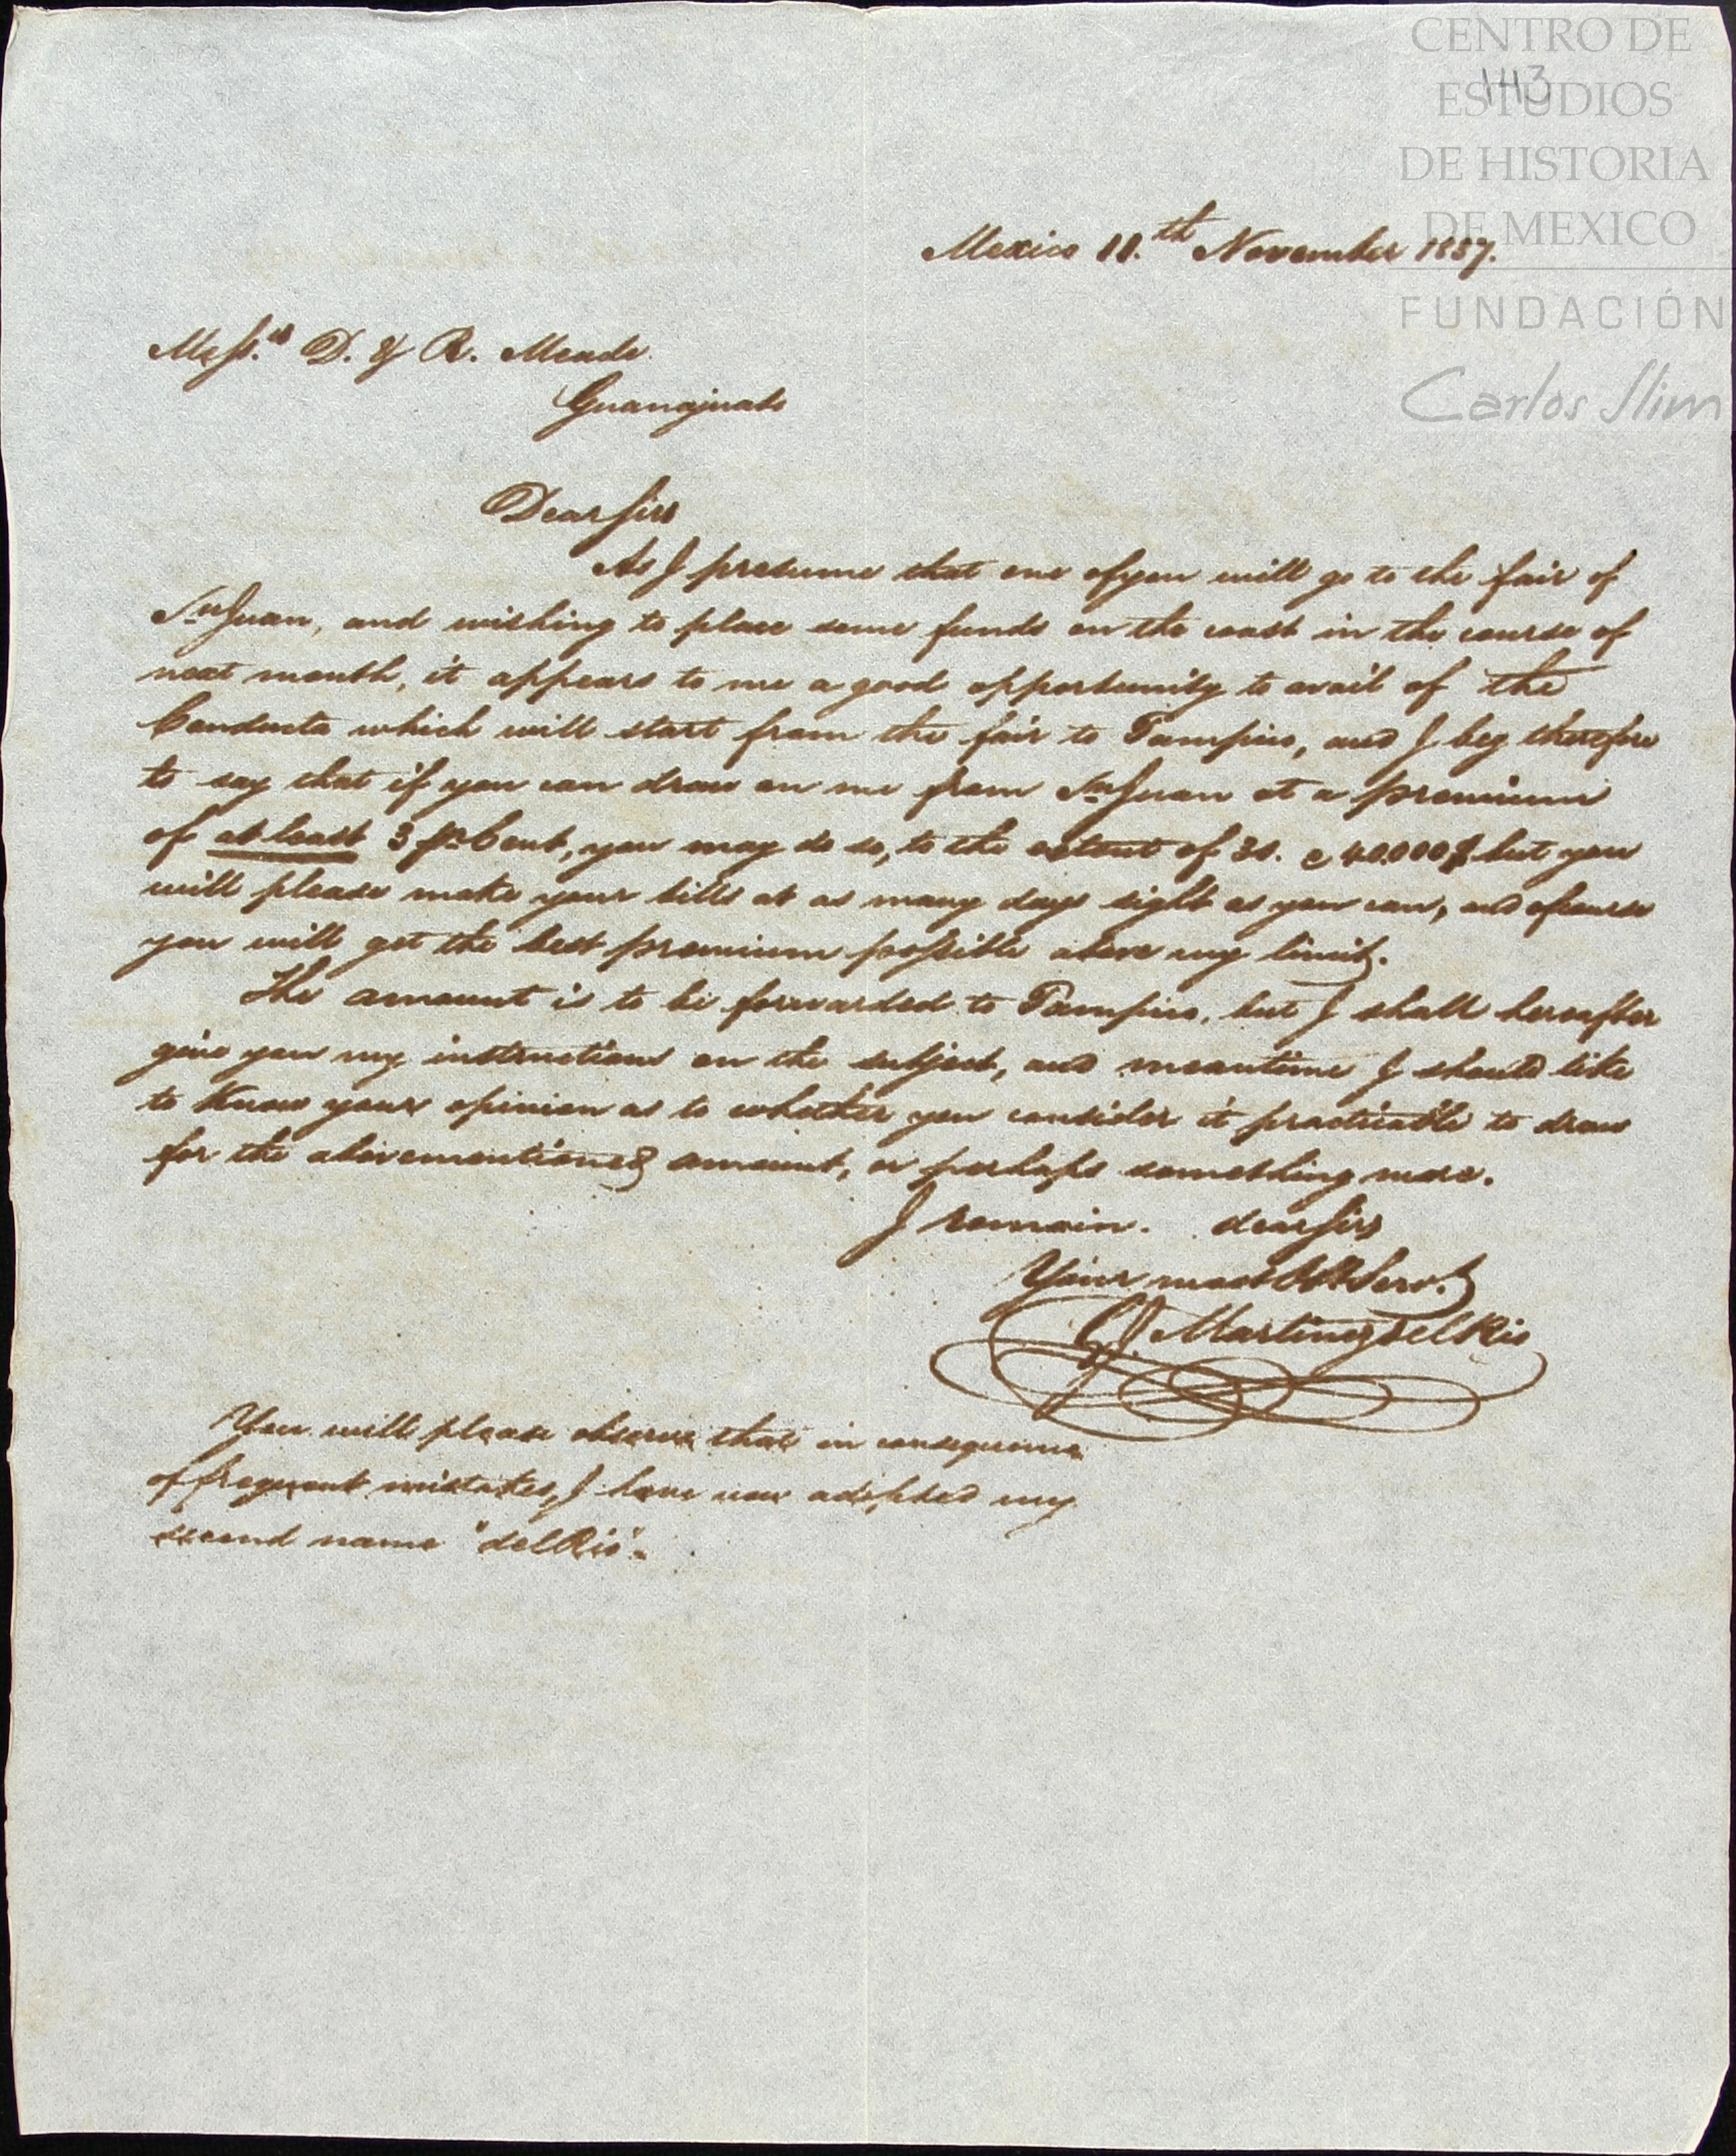 CENTRO DE
ESTUDIOS
DE HISTORIA
DE MEXICO
FUNDACIÓN
Carlos Slim
143
Mexico 11.th November 1837.
Mess.rs D. & R. Meade
Guanajuato
Dear Sirs
As I presume that one of you will go to the fair of
Sn Juan, and wishing to place some funds on the coast in the course of
next month, it appears to me a good opportunity to avail of the
Conducta which will start from the fair to Tampico, and I beg therefore
to say that if you can draw on me from Sn Juan at a premium
of at least 3 pr Cent, you may do so, to the extent of 30. a 40.000$ but you
will please make your bills at as many days sight as you can, and of course
you will get the best premium possible above my limit.
The amount is to be forwarded to Tampico, but I shall hereafter
give you my instructions on the subject, and meantime I should like
to Know your opinion as to whether you consider it practicable to draw
for the abovementioned amount, or perhaps something more.
I remain. dear Sirs
Your most Obt Servt
J. Martinez del Rio
You will please observe that in consequence
of frequent mistakes, I have now adopted my
second name "del Rio".